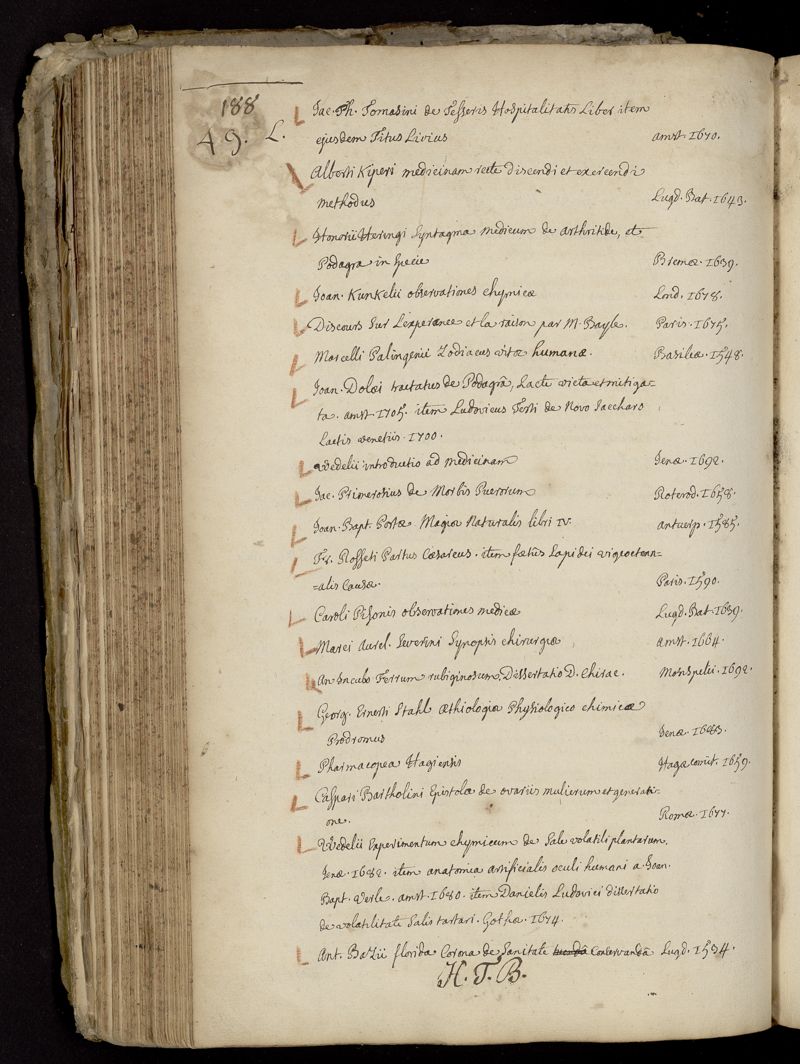 188
49. L.
Jac. Ph. Tomasini de Tesseris Hospitalitatis Liber item
ejusdem Titus Livius Amst. 1670.
Alberti Kiperi medicinam recte discendi et exercendi
methodus Lugd. Bat. 1643.
Honorii Heringi Syntagma medicum de Arthritide, et
Podagra in specie Bremæ. 1639.
Joan. Kunkelii observationes chymicæ Lond. 1678.
Discours sur L'experance et la raison par M. Bayle. Paris. 1675.
Marcelli Palingenii Zodiacus vitæ humanæ. Basileæ. 1548.
Joan. Dolæi tractatus de Podagrâ, Lacte victa et mitiga-
ta. Amst. 1705. item Ludovicus Testi de Novo Saccharo
Lactis venetiis. 1700.
Wedelii introductio ad medicinam Jenæ. 1692.
Jac. Primerosius de Morbis Puerorum Roterod. 1658.
Joan. Bapt. Portæ Magiæ Naturalis libri IV. Antverp. 1585.
Fr. Rosseti Partus Cæsareus. item fœtus Lapidei vigeoctenn=
=alis Causæ. Paris. 1590.
Caroli Pisonis observationes medicæ Lugd. Bat. 1639.
Marci Aurel. Severini Synopsis chirurgiæ Amst. 1664.
An Incubo Ferrum rubiginosum, Dissertatio D. Chirac. Monspelii. 1692.
Georg. Ernesti Stahl Æthiologiæ Physiologico chimicæ
Prodromus Jenæ. 1683.
Pharmacopea Hagiensis Hagæ Comit. 1659.
Caspari Bartholini Epistola de ovariis mulierum et generati-
one. Romæ. 1677.
Wedelii Experimentum chymicum de Sale volatili plantarum.
Jenæ. 1682. item anatomia artificialis oculi humani a Joan.
Bapt. Verle. Amst. 1680. item Danielis Ludovici dissertatio
de volatilitate Salis tartari. Gothæ. 1674.
Ant. Bazii florida Corona de Sanitate Conservandâ Lugd. 1534.
H. T. B.